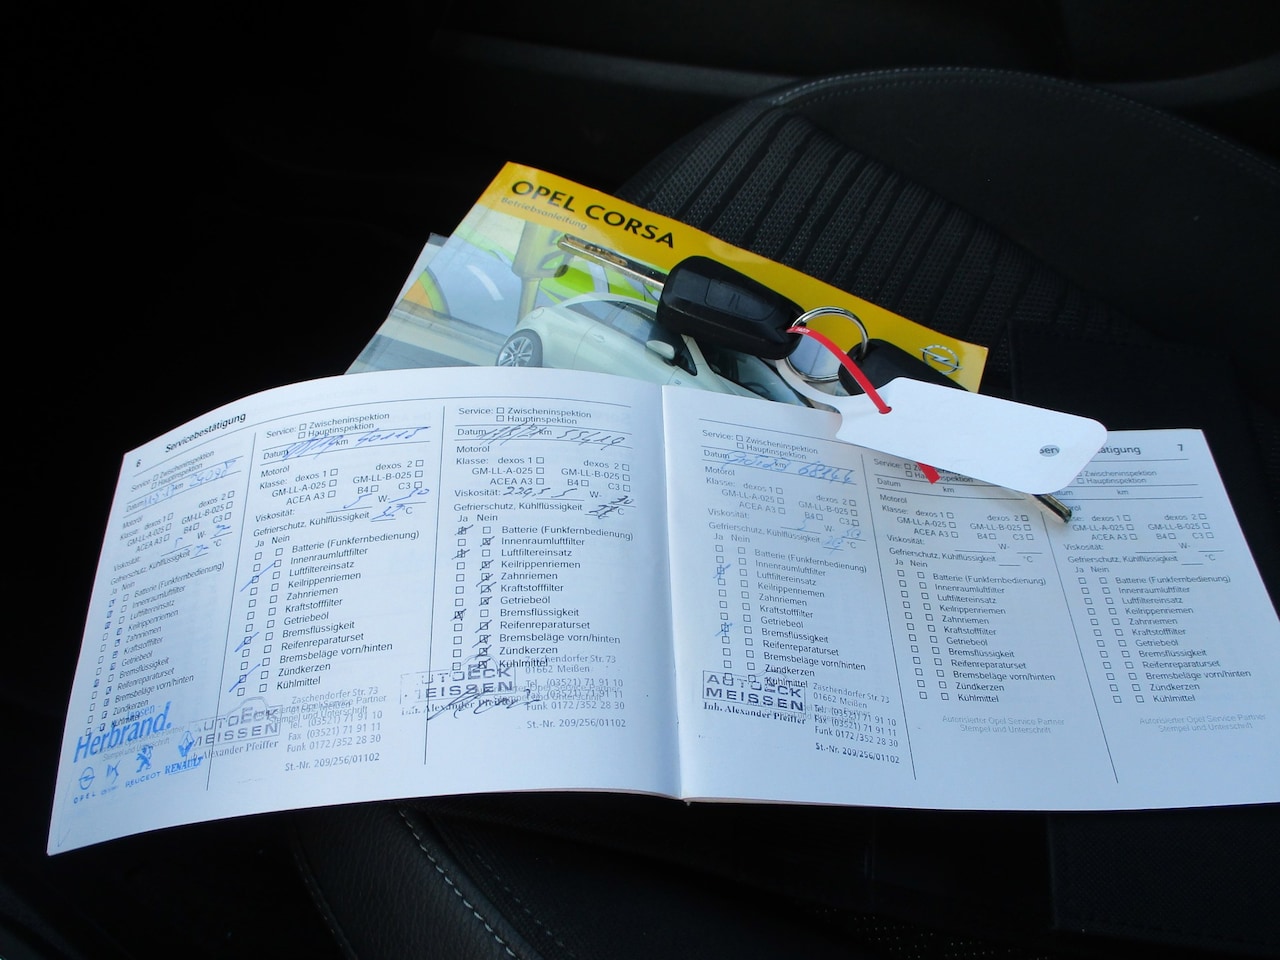 OPEL CORSA
Betriebsanleitung
6 Servicebestätigung
Service: Zwischeninspektion
Hauptinspektion
Datum km
Motoröl
Klasse: dexos 1 dexos 2
GM-LL-A-025 GM-LL-B-025
ACEA A3 B4 C3
Viskosität: W-
Gefrierschutz, Kühlflüssigkeit °C
Ja Nein
Batterie (Funkfernbedienung)
Innenraumluftfilter
Luftfiltereinsatz
Keilrippenriemen
Zahnriemen
Kraftstofffilter
Getriebeöl
Bremsflüssigkeit
Reifenreparaturset
Bremsbeläge vorn/hinten
Zündkerzen
Kühlmittel
Jansen-
Herbrand.
Stempel und Unterschrift
OPEL PEUGEOT RENAULT
Service: Zwischeninspektion
Hauptinspektion
Datum km
Motoröl
Klasse: dexos 1 dexos 2
GM-LL-A-025 GM-LL-B-025
ACEA A3 B4 C3
Viskosität: W-
Gefrierschutz, Kühlflüssigkeit °C
Ja Nein
Batterie (Funkfernbedienung)
Innenraumluftfilter
Luftfiltereinsatz
Keilrippenriemen
Zahnriemen
Kraftstofffilter
Getriebeöl
Bremsflüssigkeit
Reifenreparaturset
Bremsbeläge vorn/hinten
Zündkerzen
Kühlmittel
AUTOECK
MEISSEN
Inh. Alexander Pfeiffer
Zaschendorfer Str. 73
Tel. (03521) 71 91 10
Fax (03521) 71 91 11
Funk 0172/352 28 30
St.-Nr. 209/256/01102
Service: Zwischeninspektion
Hauptinspektion
Datum km 55419
Motoröl
Klasse: dexos 1 dexos 2
GM-LL-A-025 GM-LL-B-025
ACEA A3 B4 C3
Viskosität: 5 W- 30
Gefrierschutz, Kühlflüssigkeit °C
Ja Nein
Batterie (Funkfernbedienung)
Innenraumluftfilter
Luftfiltereinsatz
Keilrippenriemen
Zahnriemen
Kraftstofffilter
Getriebeöl
Bremsflüssigkeit
Reifenreparaturset
Bremsbeläge vorn/hinten
Zündkerzen
Kühlmittel
AUTOECK
MEISSEN
Inh. Alexander Pfeiffer
Zaschendorfer Str. 73
01662 Meißen
Tel. (03521) 71 91 10
Fax (03521) 71 91 11
St.-Nr. 209/256/01102
Service: Zwischeninspektion
Hauptinspektion
Datum km 68844
Motoröl
Klasse: dexos 1 dexos 2
GM-LL-A-025 GM-LL-B-025
ACEA A3 B4 C3
Viskosität: W-
Gefrierschutz, Kühlflüssigkeit °C
Ja Nein
Batterie (Funkfernbedienung)
Innenraumluftfilter
Luftfiltereinsatz
Keilrippenriemen
Zahnriemen
Kraftstofffilter
Getriebeöl
Bremsflüssigkeit
Reifenreparaturset
Bremsbeläge vorn/hinten
Zündkerzen
Kühlmittel
AUTOECK
MEISSEN
Inh. Alexander Pfeiffer
Zaschendorfer Str. 73
01662 Meißen
Tel. (03521) 71 91 10
Fax (03521) 71 91 11
Funk 0172/352 28 30
St.-Nr. 209/256/01102
Datum km
Motoröl
Klasse: dexos 1 dexos 2
GM-LL-A-025 GM-LL-B-025
ACEA A3 B4 C3
Viskosität: W-
Gefrierschutz, Kühlflüssigkeit °C
Ja Nein
Batterie (Funkfernbedienung)
Innenraumluftfilter
Luftfiltereinsatz
Keilrippenriemen
Zahnriemen
Kraftstofffilter
Getriebeöl
Bremsflüssigkeit
Reifenreparaturset
Bremsbeläge vorn/hinten
Zündkerzen
Kühlmittel
Autorisierter Opel Service Partner
Stempel und Unterschrift
Servicebestätigung 7
Zwischeninspektion
Hauptinspektion
Datum km
Motoröl
Klasse: dexos 1 dexos 2
GM-LL-A-025 GM-LL-B-025
ACEA A3 B4 C3
Viskosität: W-
Gefrierschutz, Kühlflüssigkeit °C
Ja Nein
Batterie (Funkfernbedienung)
Innenraumluftfilter
Luftfiltereinsatz
Keilrippenriemen
Zahnriemen
Kraftstofffilter
Getriebeöl
Bremsflüssigkeit
Reifenreparaturset
Bremsbeläge vorn/hinten
Zündkerzen
Kühlmittel
Autorisierter Opel Service Partner
Stempel und Unterschrift